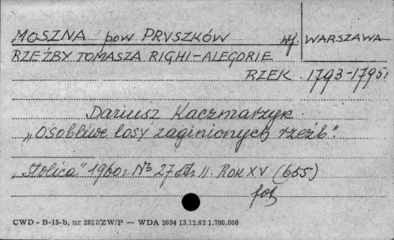 MOSZNA pow PRUSZKÓW wj. WARSZAWA
RZEŹBY TOMASZA RIGHI-ALEGORIE
RZEK 1793-1795
Dariusz Kaczmarzyk
„Osobliwe losy zaginionych rzeźb".
„Stolica" 1960r. Nr 27 str. 11. ROK XV (655)
fot
CWD - B-15-b, nr 2827/ZW/P — WDA 2694 13.12.62 1.700.000